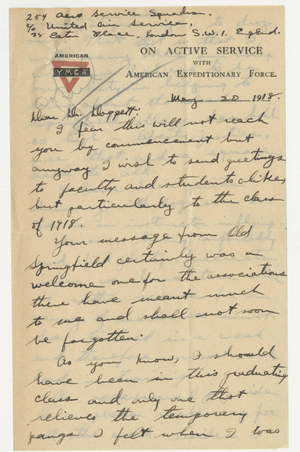 257 Aero Service Squadron.
c/o United Air Service,
35 Eaton Place, London S.W.1. England.
AMERICAN
YMCA
ON ACTIVE SERVICE
WITH
AMERICAN EXPEDITIONARY FORCE.
May 20 1918.
Dear Dr. Doggett:
I fear this will not reach
you by commencement but
anyway I wish to send greetings
to faculty and students alike,
but particularly to the class
of 1918.
Your message from Old
Springfield certainly was a
welcome one for the associations
there have meant much
to me and shall not soon
be forgotten.
As you know, I should
have been in this graduating
class and only one that
relieves the temporary
pangs I felt when I was